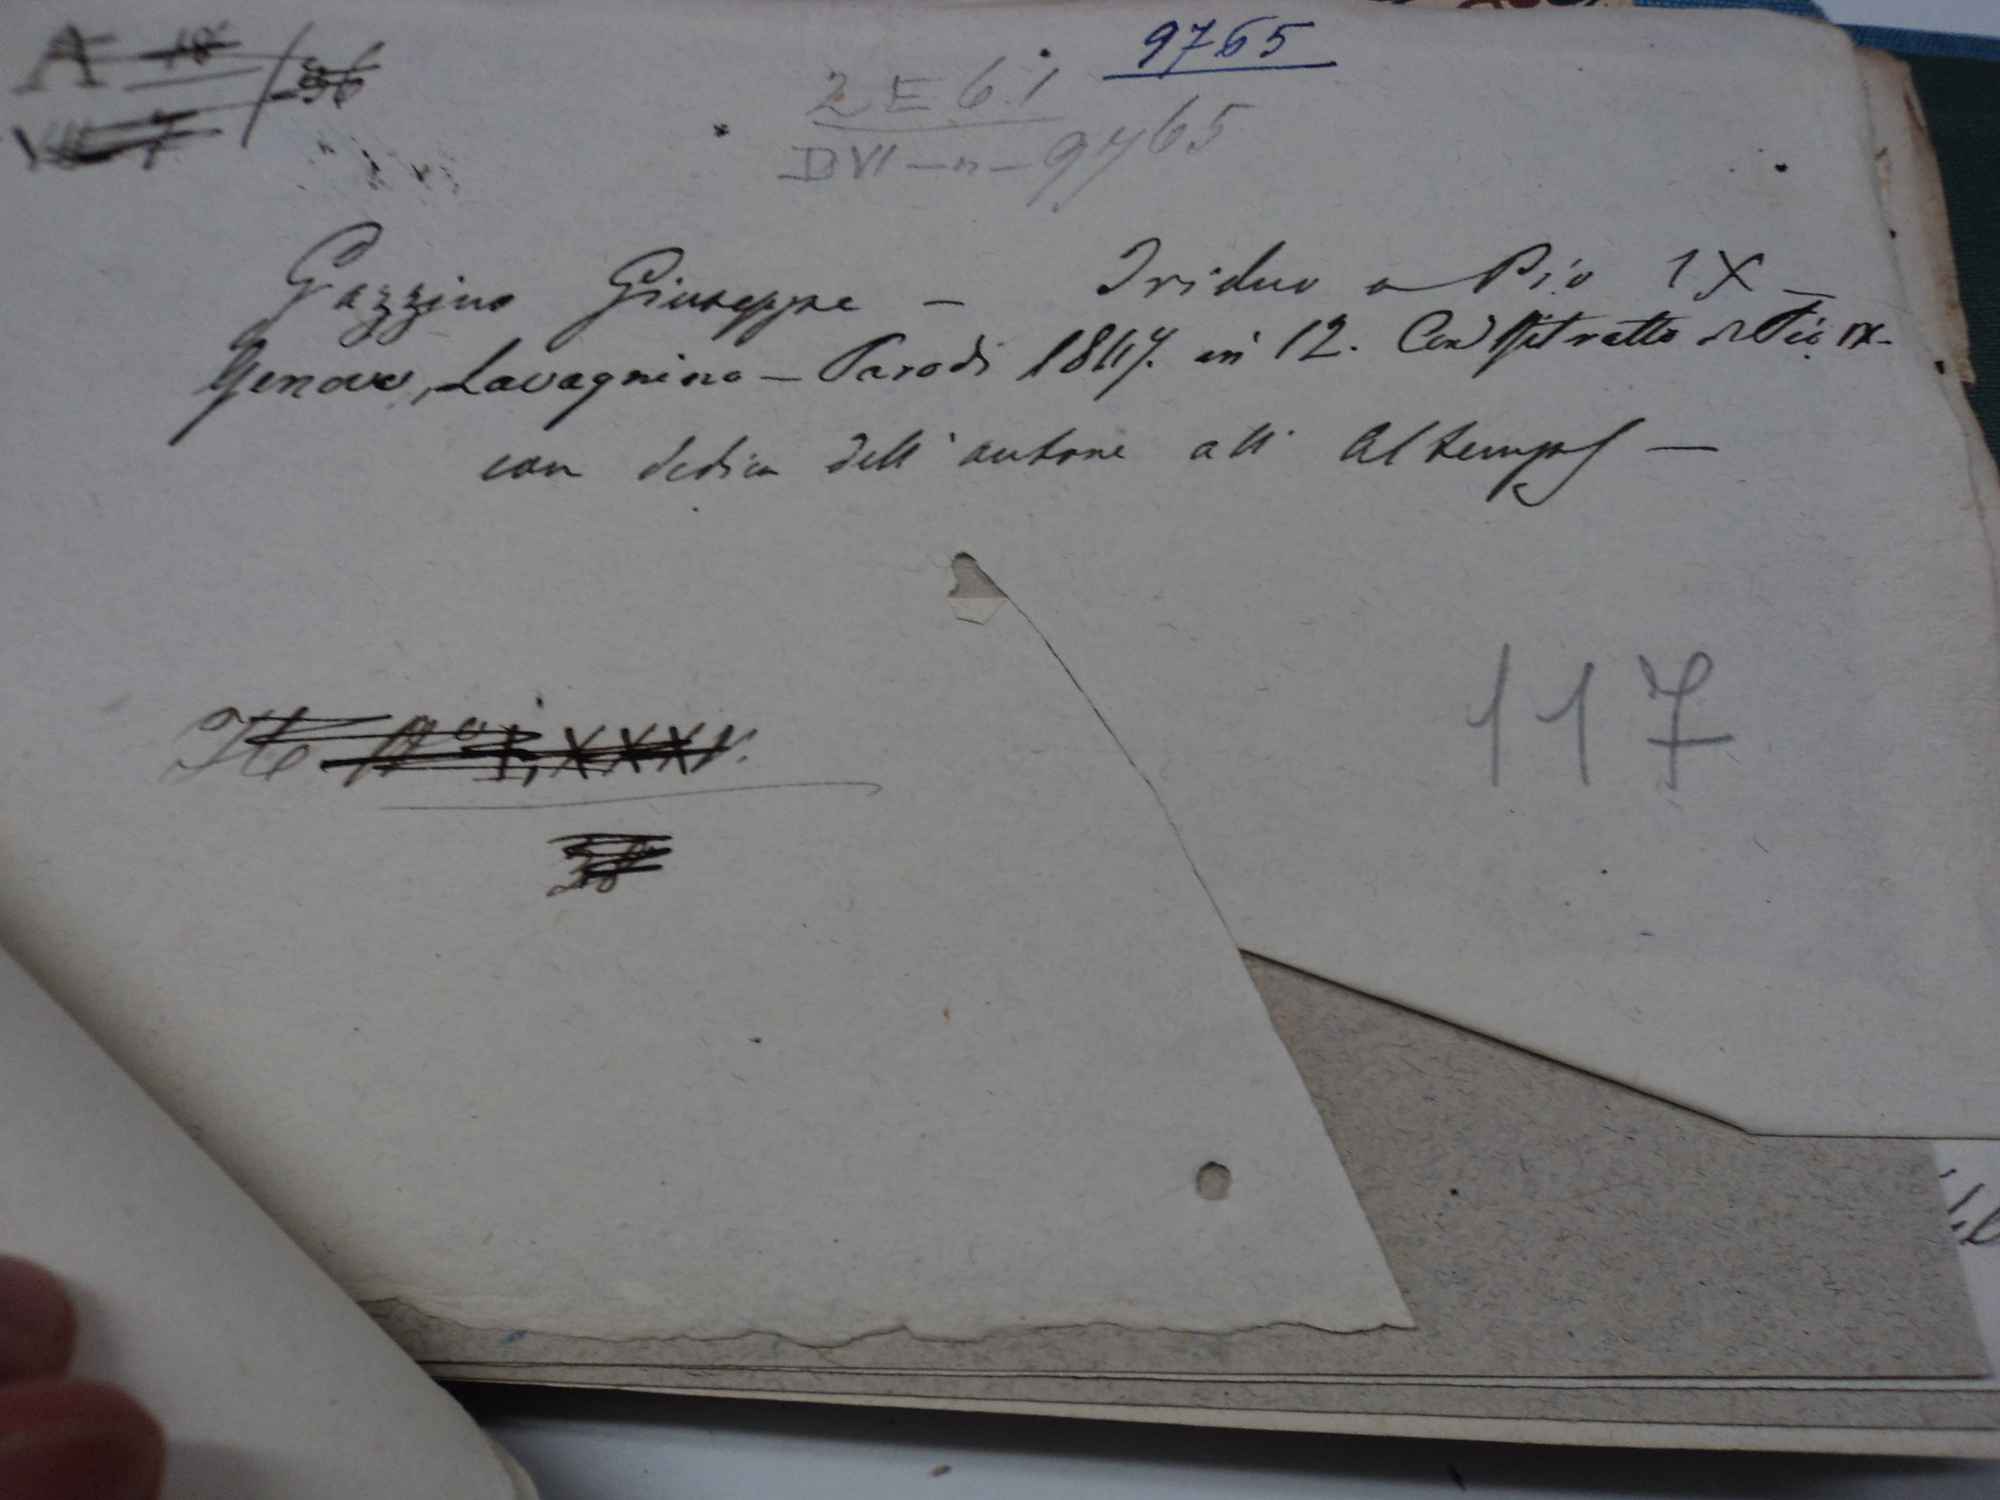 A 18 / 36
9765
2 E 6.1
D VI - n - 9765
Gazzino Giuseppe - Triduo a Pio IX -
Genova, Lavagnino - Parodi 1847. in 12. Con Ritratto di Pio IX.
con dedica dell'autore all'Altemps -
117
38